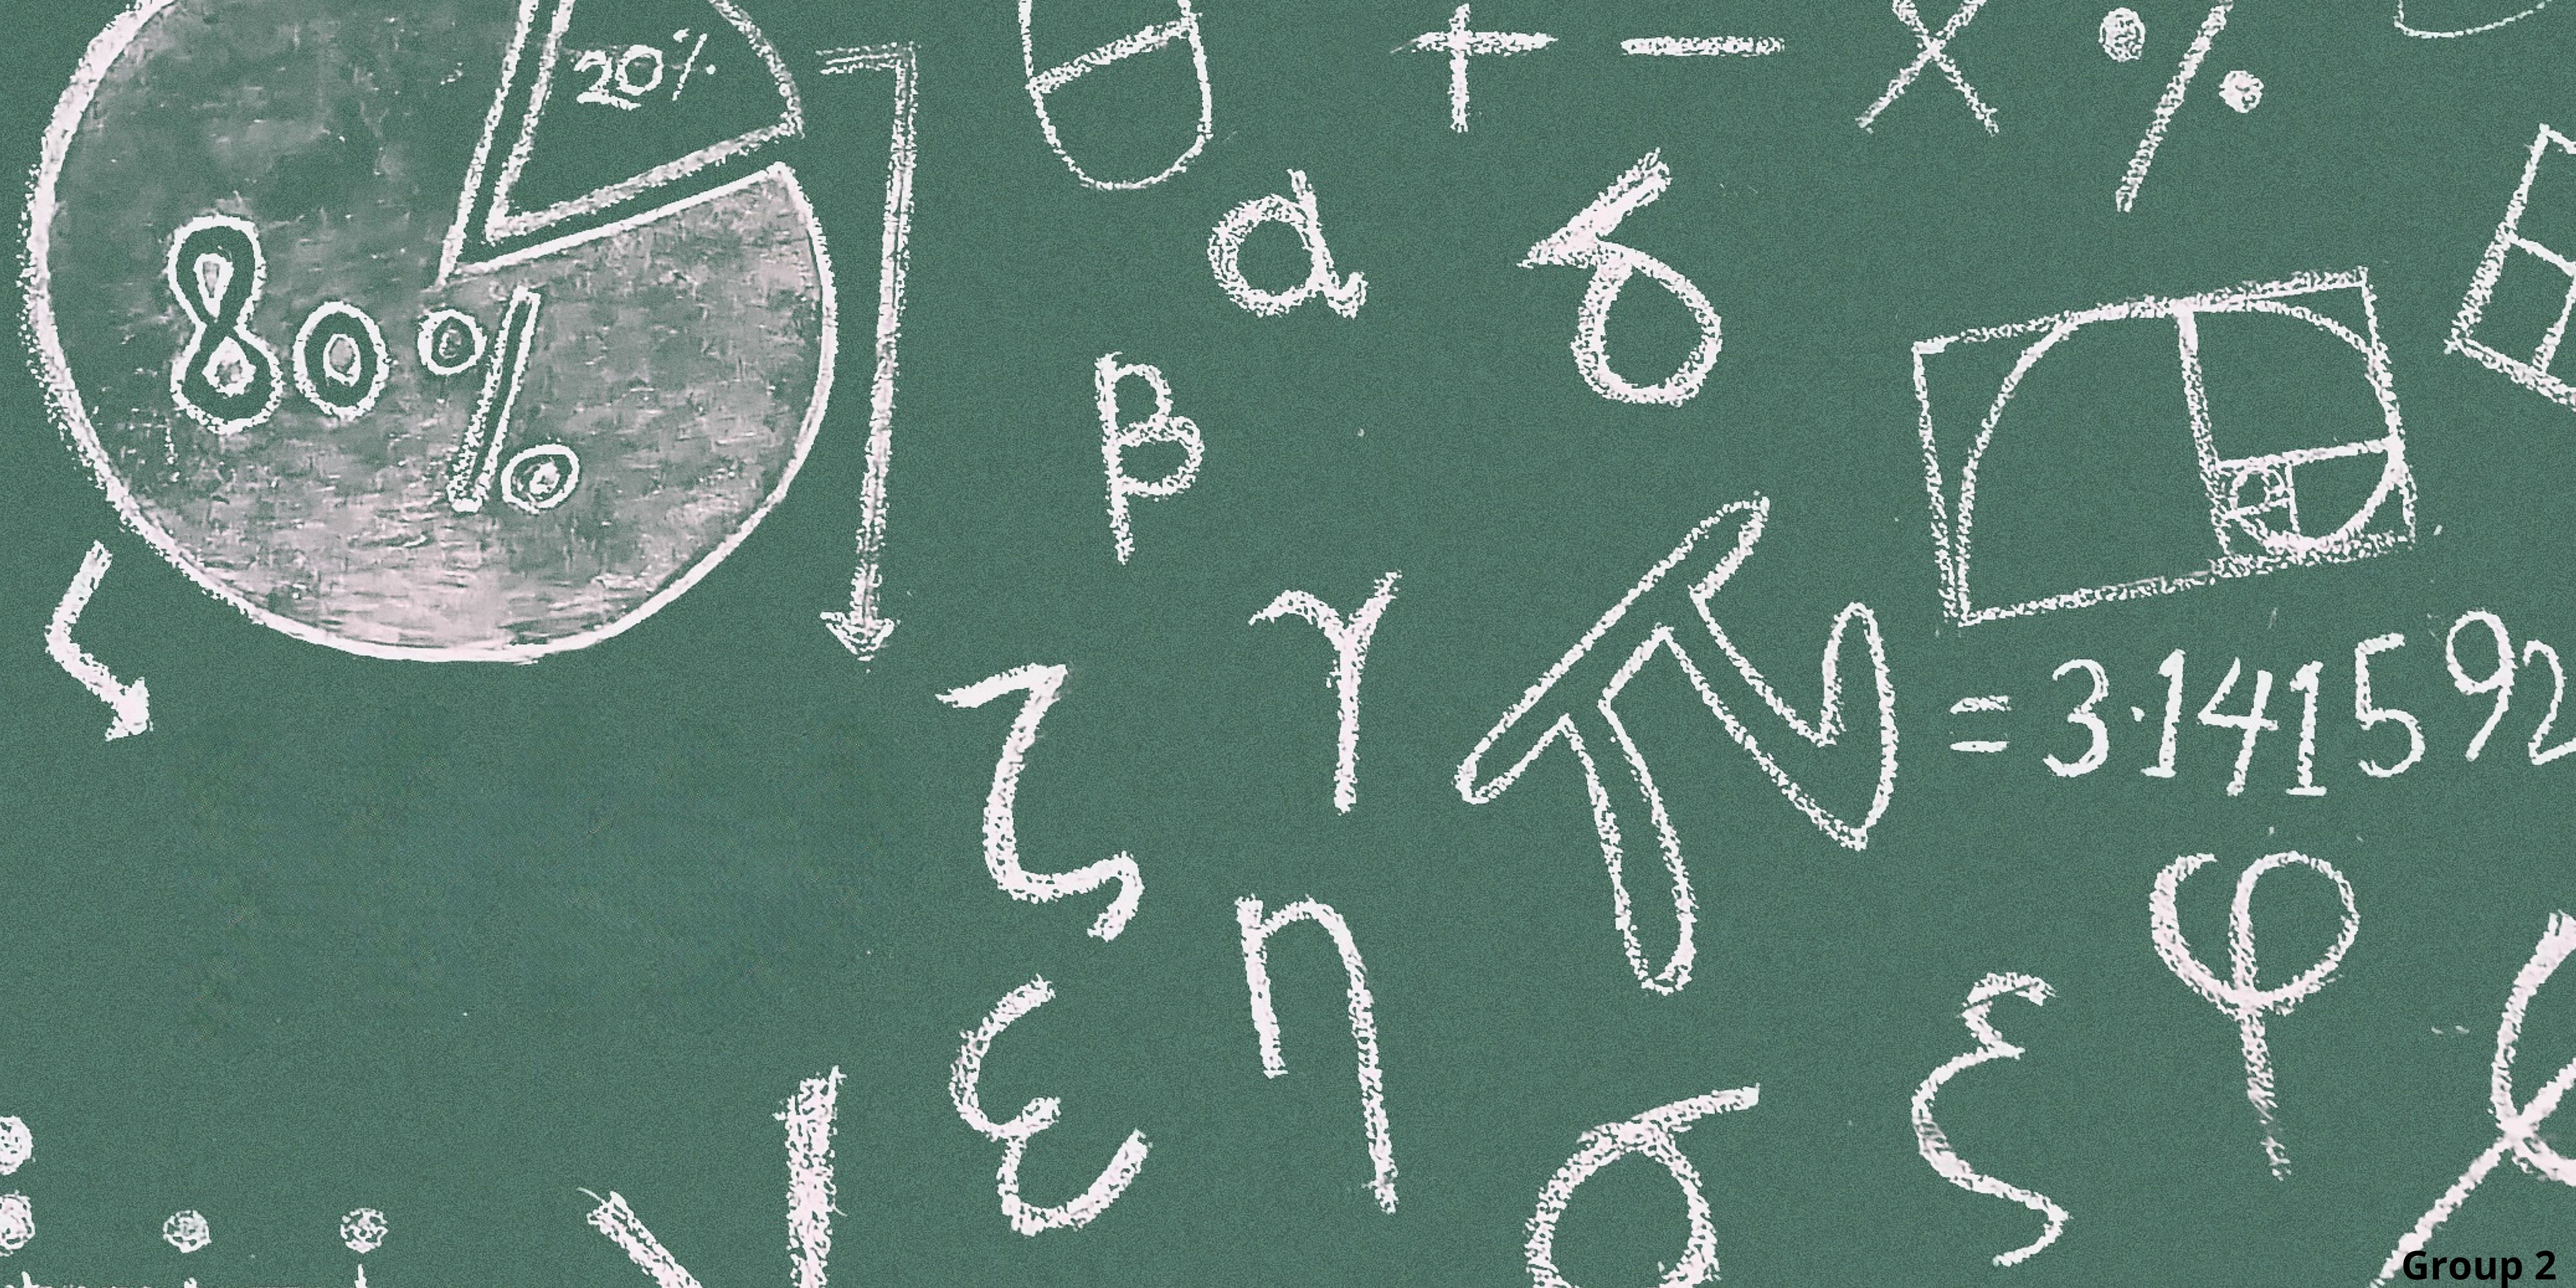 20%
θ + - × %
80%
α δ
β
γ
ζ π = 3.141592
η φ
ε ξ
σ
Group 2